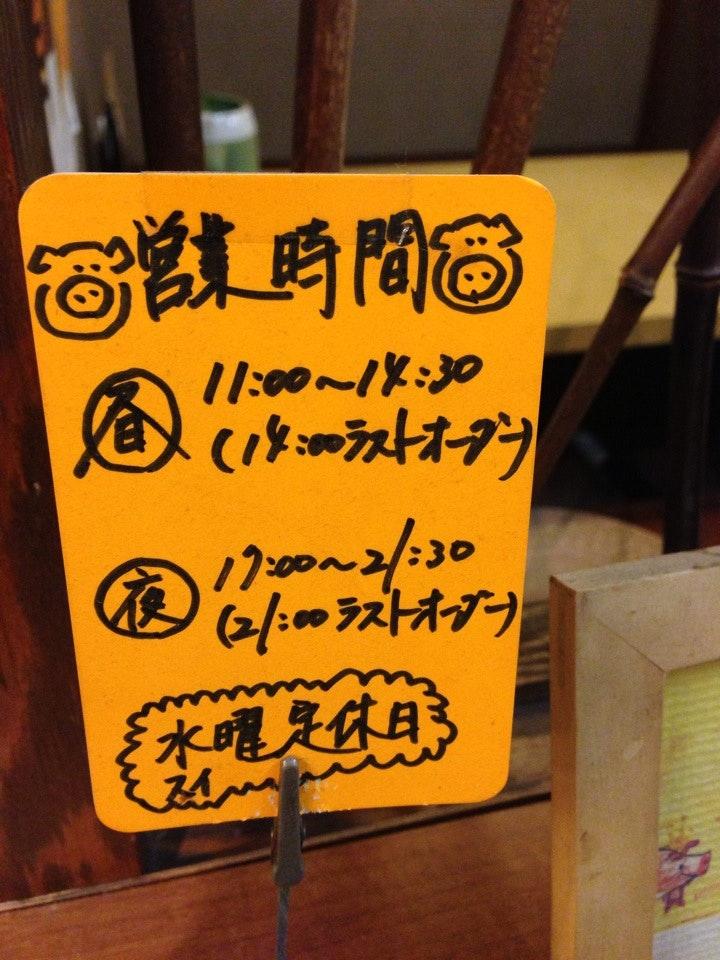 営業時間
昼 11:00～14:30
(14:00ラストオーダー)
夜 17:00～21:30
(21:00ラストオーダー)
水曜定休日
スイ